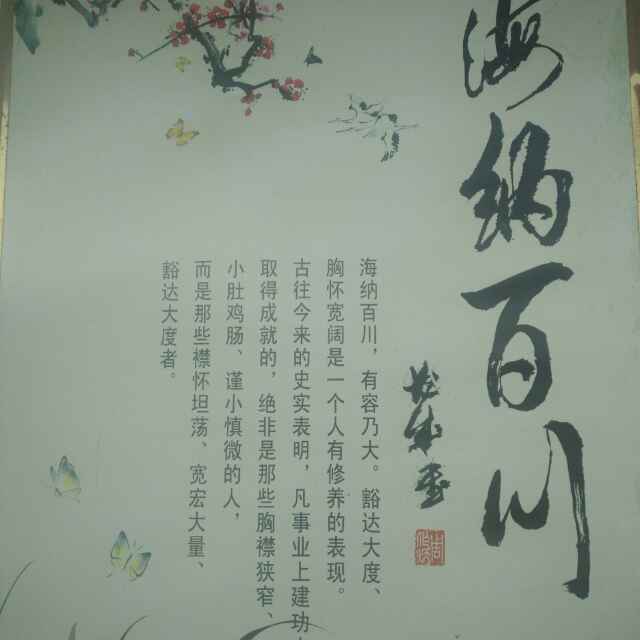 海纳百川
海纳百川，有容乃大。豁达大度、
胸怀宽阔是一个人有修养的表现。
古往今来的史实表明，凡事业上建功
取得成就的，绝非是那些胸襟狭窄、
小肚鸡肠、谨小慎微的人，
而是那些襟怀坦荡、宽宏大量、
豁达大度者。